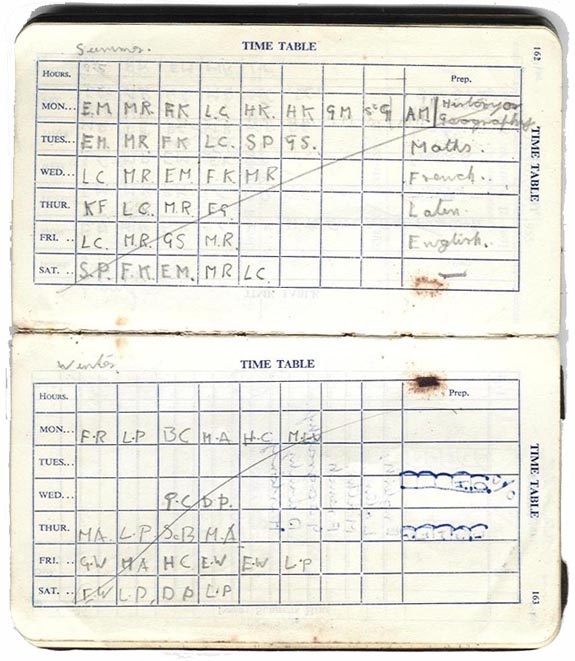 Summer.
TIME TABLE
162
HOURS. Prep.
MON... E.M M.R. F.K L.C H.K. H.K G.M ScG A.M History or
Geography
TUES... E.M. M.R F.K L.C. S.P G.S. Maths.
WED... L.C M.R E.M F.K M.R French.
THUR. K.F L.C. M.R. E.G. Laten.
FRI. .. L.C. M.R. G.S M.R. English.
SAT. .. S.P. F.K E.M. M.R L.C.
TIME TABLE
Winter
TIME TABLE
Prep.
HOURS.
MON... F.R L.P B.C M.A H.C
TUES...
WED... P.C D.P.
THUR. M.A. L.P ScB M.A
FRI. .. G.W M.A H.C E.W E.W L.P
SAT. .. E.W L.P. D.P L.P
TIME TABLE
163